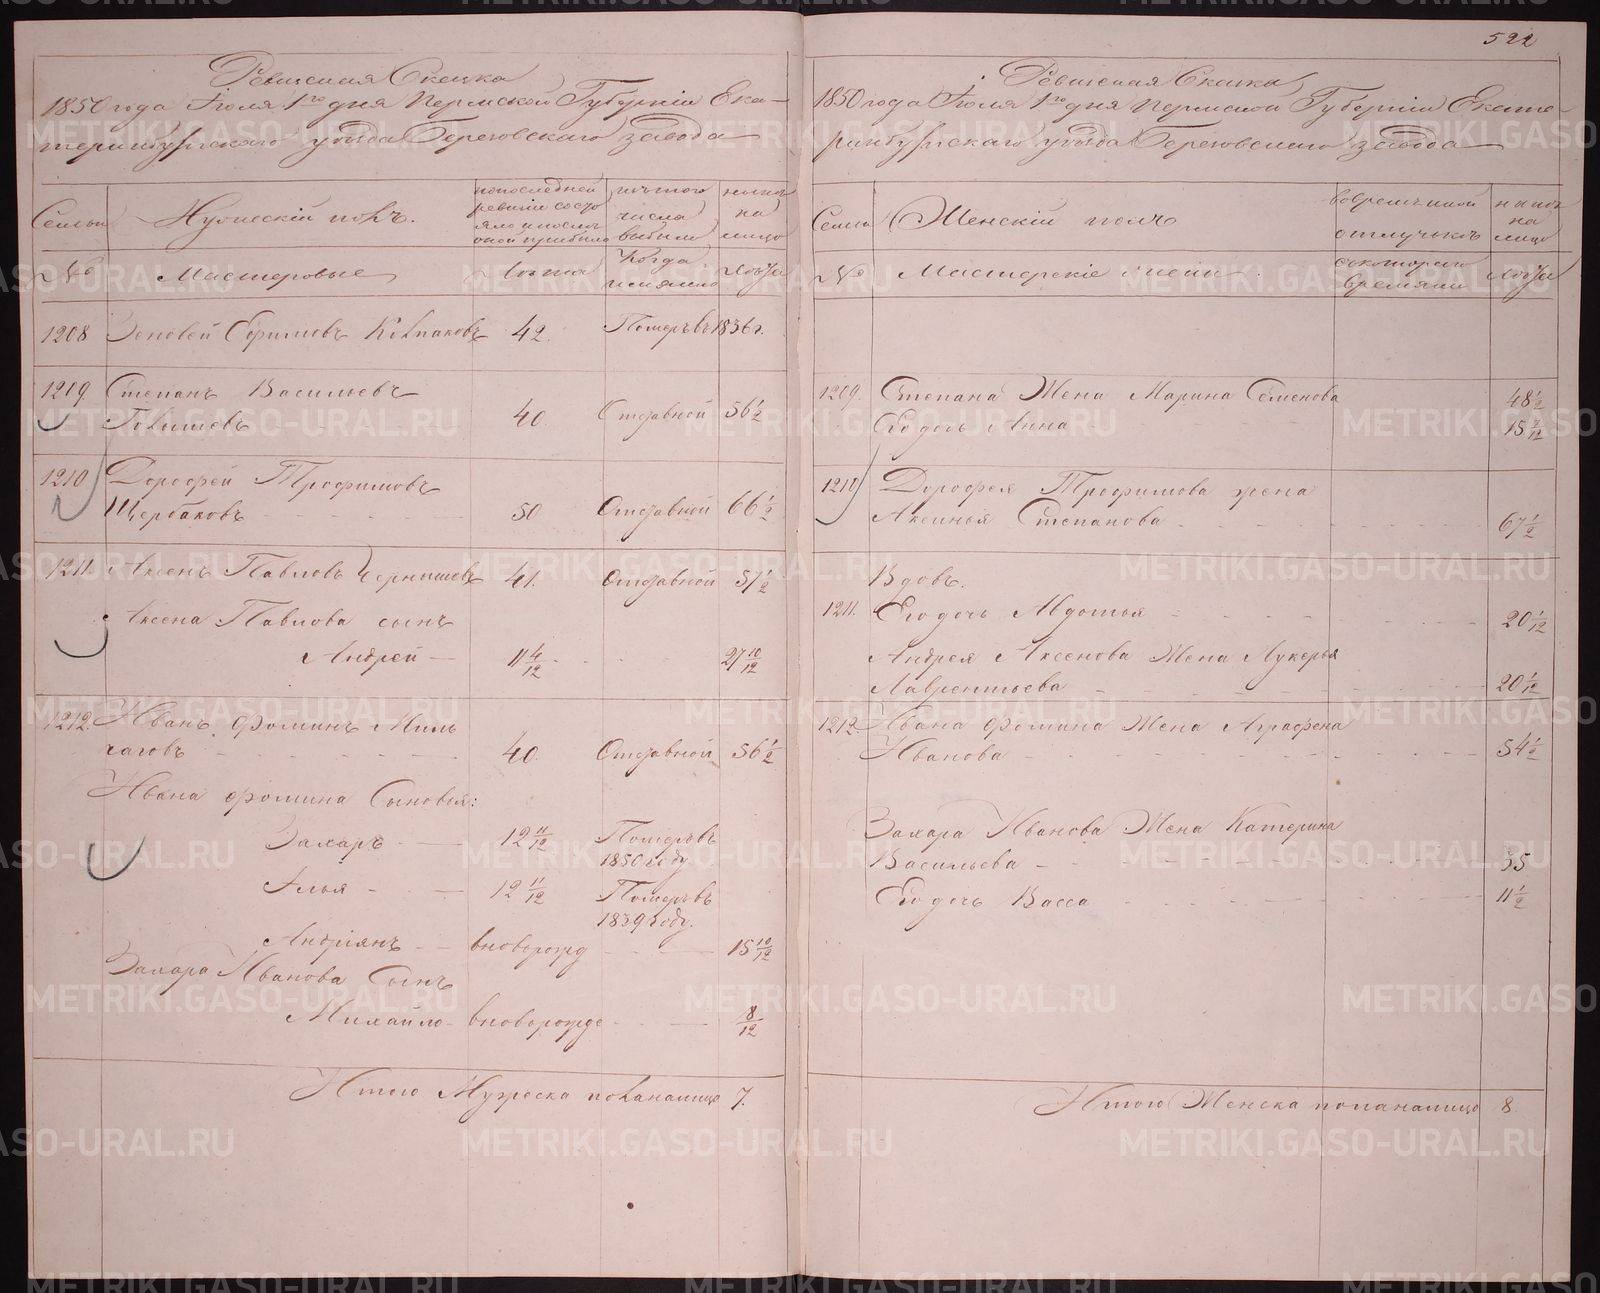 Ревизская Сказка
1850 года Іюля 1го дня Пермской Губерніи Ека-
теринбургскаго уѣзда Березовскаго завода
Семьи
Мужескій полъ.
по последней
ревизіи состо
яло и после
оной прибыло
изъ того
числа
выбыло
ныне
на
лицо
№
Мастеровые
Лѣта
Когда
именно
Лѣта
1208 Зеновей Ефимовъ Колпаковъ 42. Померъ въ 1836 г.
1209 Степанъ Васильевъ
40. Отставной 56 1/2
1210 Дорофей Трофимовъ
Щербаковъ 50 Отставной 66 1/2
1211. Аксенъ Павловъ Чернышевъ 41. Отставной 57 1/2
Аксена Павлова сынъ
Андрей 11 4/12 27 10/12
1212. Иванъ Фоминъ Миль
чаговъ 40. Отставной 56 1/2
Ивана Фомина Сыновья:
Захаръ 12 11/12 Померъ въ
1850 году
Илья 12 11/12 Померъ въ
1839 году.
Андріянъ вноворожд 15 10/12
Захара Иванова Сынъ
Михайло вноворожде 8/12
Итого Мужеска пола налицо 7.
522
Ревизская Сказка
1850 года Іюля 1го дня Пермской Губерніи Екате-
ринбургскаго уѣзда Березовскаго завода
Семьи
Женскій полъ
во временной
отлучкѣ
ныне
на
лицо
№
Мастерскіе жены
съ котораго
времяни
Лѣта
1209. Степана Жена Марина Семенова 48 1/2
Его дочь Анна 15 7/12
1210 Дорофея Трофимова жена
Аксинья Степанова 67 1/2
Вдовъ.
1211. Его дочь Авдотья 20 1/12
Андрея Аксенова Жена Лукерья
Лаврентьева 20 1/12
1212 Ивана Фомина Жена Аграфена
Иванова 54 1/2
Захара Иванова Жена Катерина
Васильева 35
Его дочь Васса 11 1/2
Итого Женска пола налицо 8.
METRIKI.GASO-URAL.RU